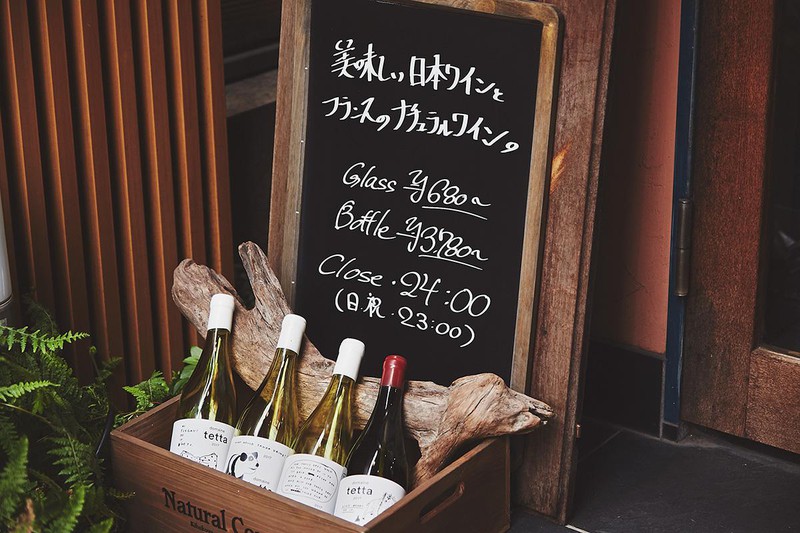 美味しい日本ワインと
フランスのナチュラルワイン。
Glass ¥680~
Bottle ¥3,780~
Close・24:00
(日.祝・23:00)
domaine
tetta
domaine
tetta
Natural